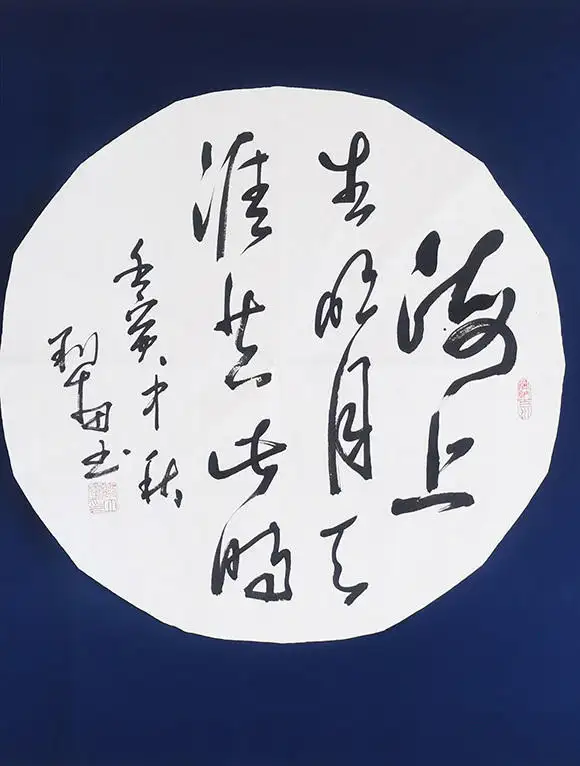 海上
生明月天
涯共此時
壬寅中秋
书